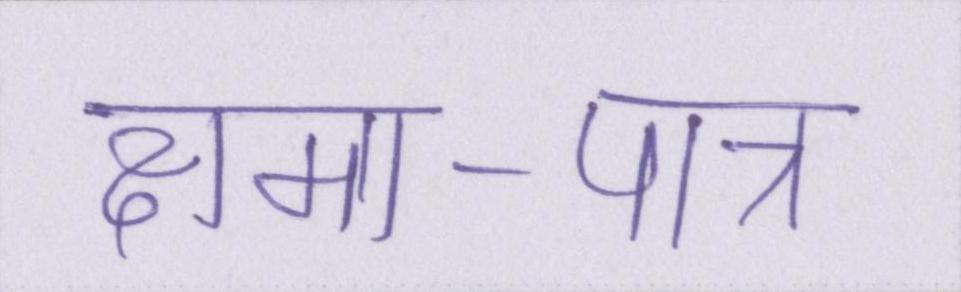 क्षमा-पात्र